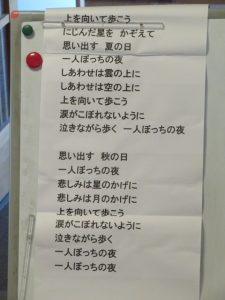 上を向いて歩こう
にじんだ星を かぞえて
思い出す 夏の日
一人ぼっちの夜
しあわせは雲の上に
しあわせは空の上に
上を向いて歩こう
涙がこぼれないように
泣きながら歩く 一人ぼっちの夜
思い出す 秋の日
一人ぼっちの夜
悲しみは星のかげに
悲しみは月のかげに
上を向いて歩こう
涙がこぼれないように
泣きながら歩く
一人ぼっちの夜
一人ぼっちの夜